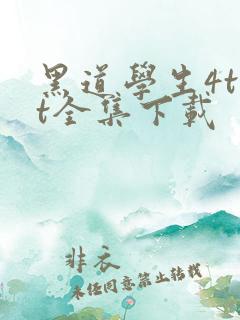 黑道學生4t
t全集下載
非衣
未经同意禁止转载